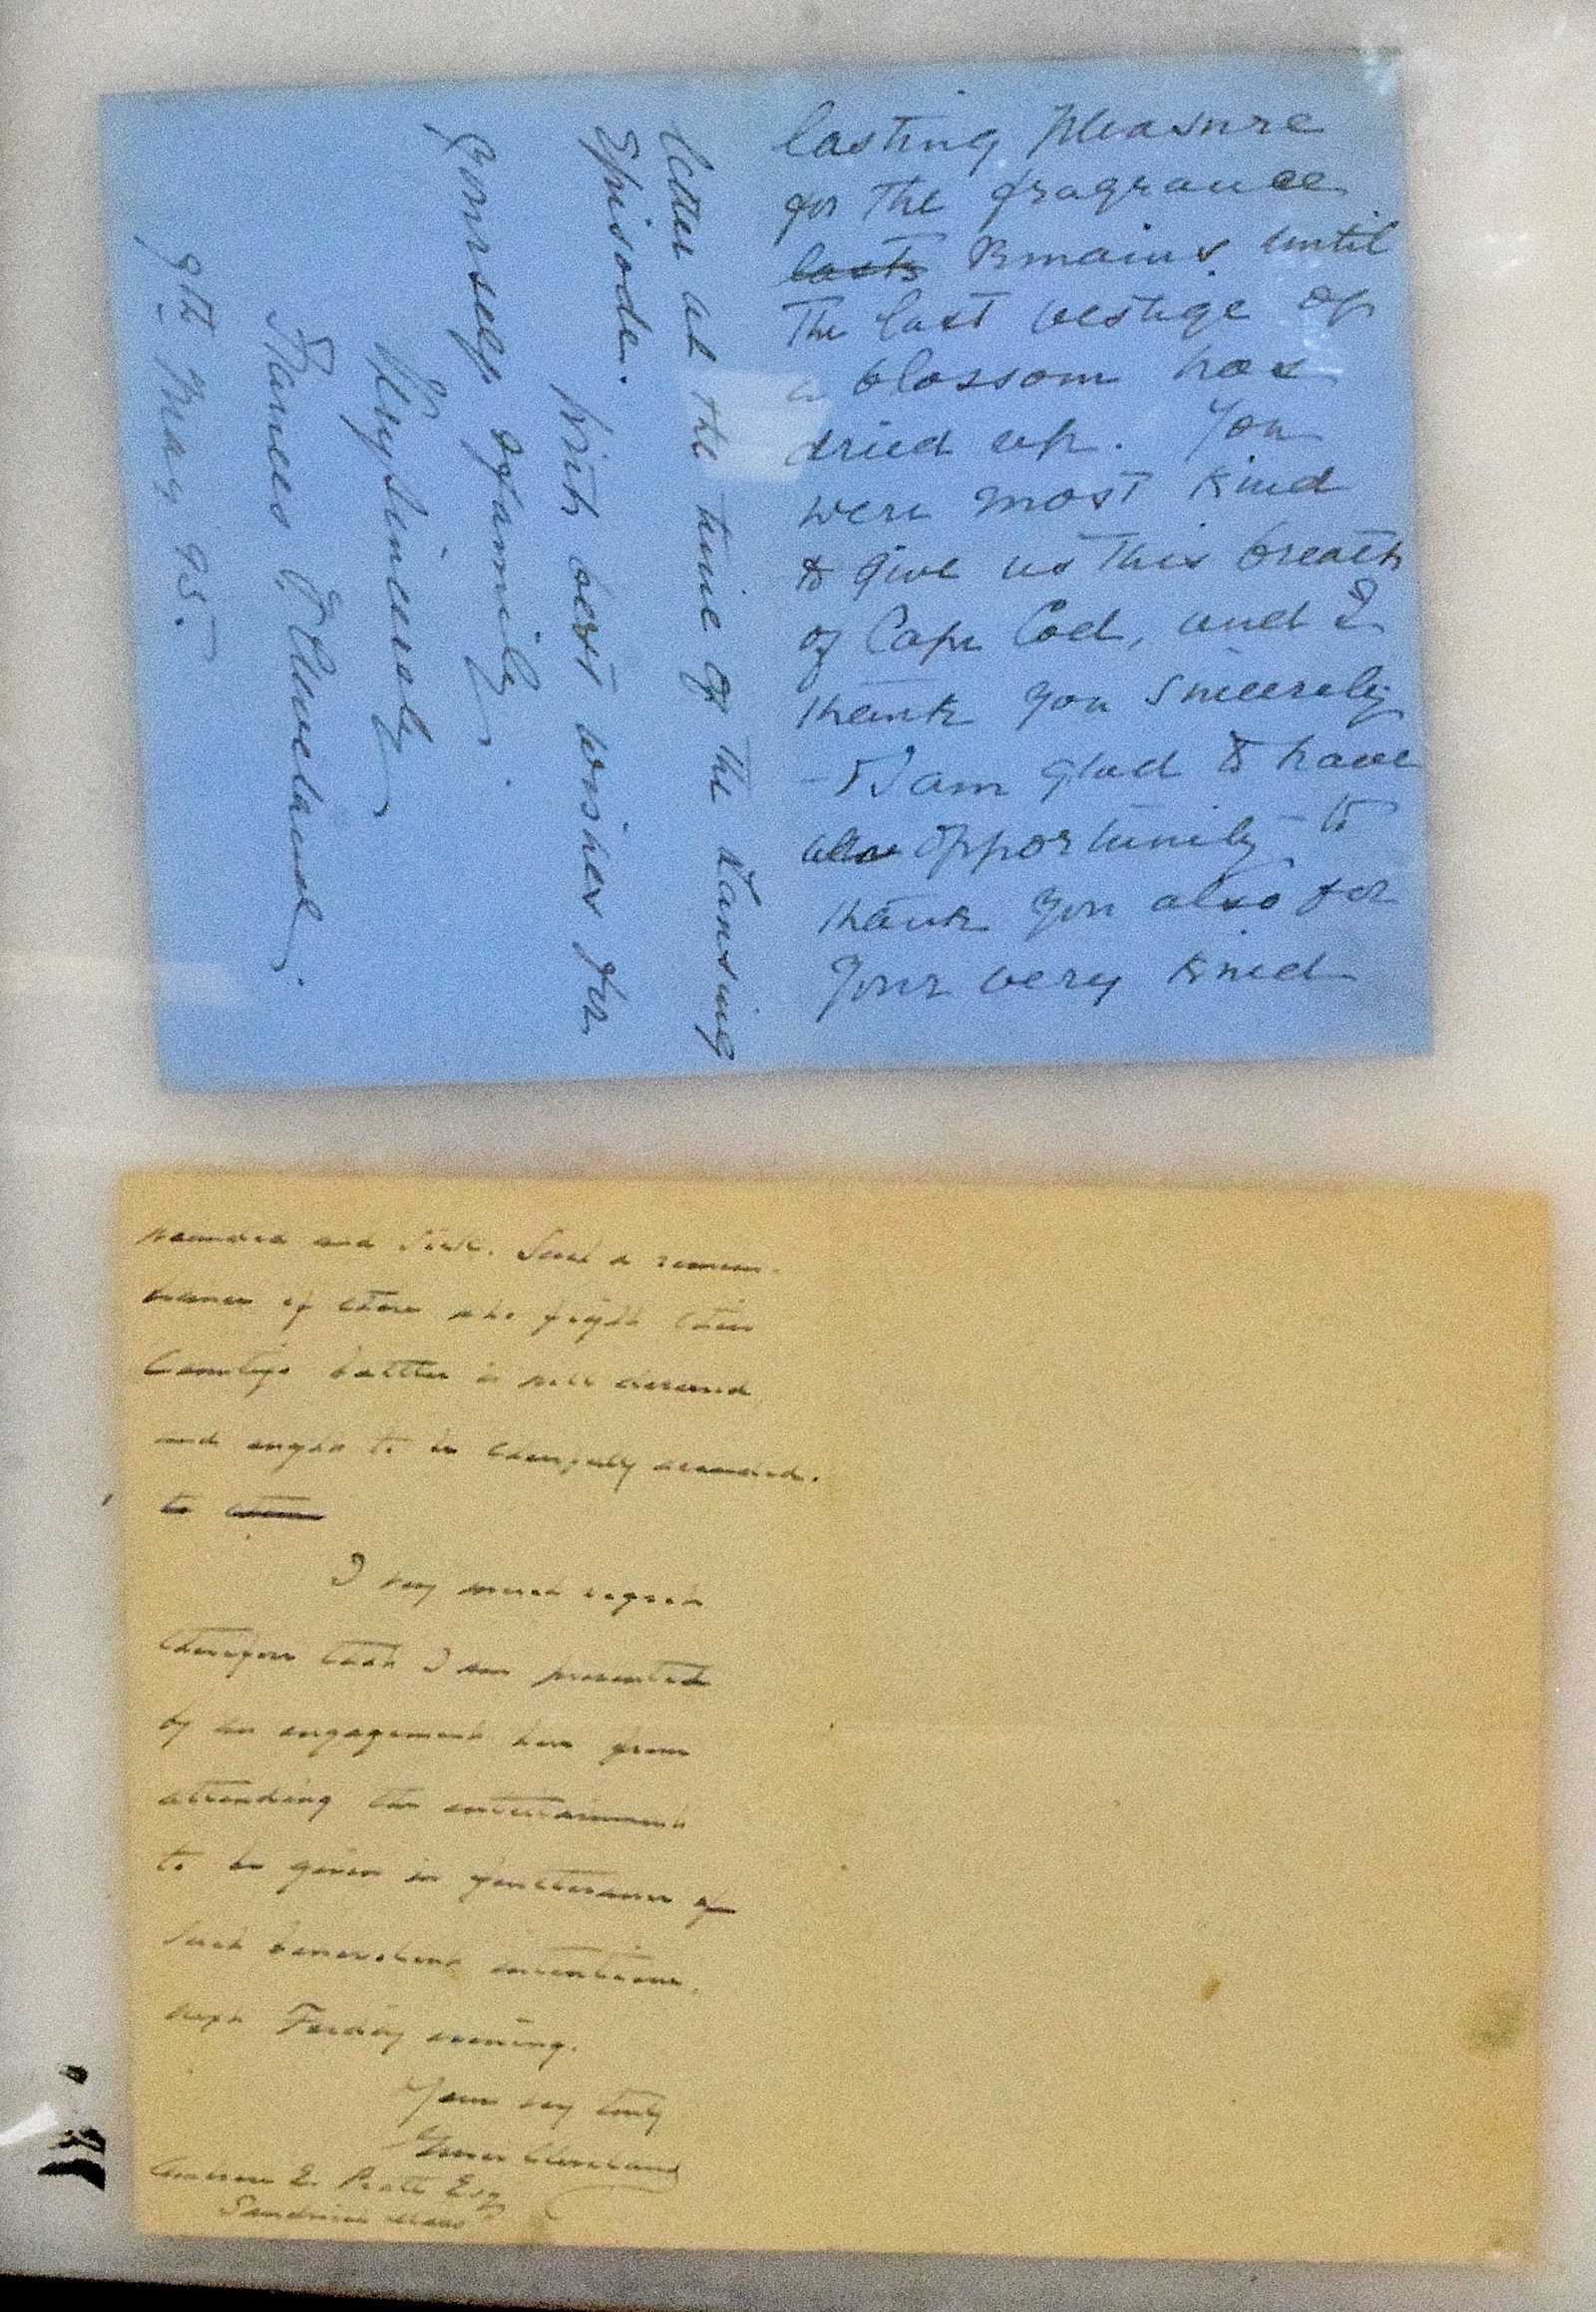 lasting pleasure
for the fragrance
lasts remains until
the last vestige of
a blossom has
dried up. You
were most kind
to give us this breath
of Cape Cod, and I
thank you sincerely
- I am glad to have
opportunity to
thank you also for
your very kind
letter at the time of the Lansing
Episode.
With best wishes for
yourself & family,
Very Sincerely
Frances F. Cleveland.
9th May 95.
wounded and sick. Such a remem-
brance of those who fight their
Country's battles is well deserved
and ought to be cheerfully accorded.
to them
I very much regret
therefore that I am prevented
by an engagement here from
attending the entertainment
to be given in furtherance of
such benevolent intentions,
next Tuesday evening.
Yours very truly
Grover Cleveland
Ambrose E. Pratt Esq
Sandwich Mass